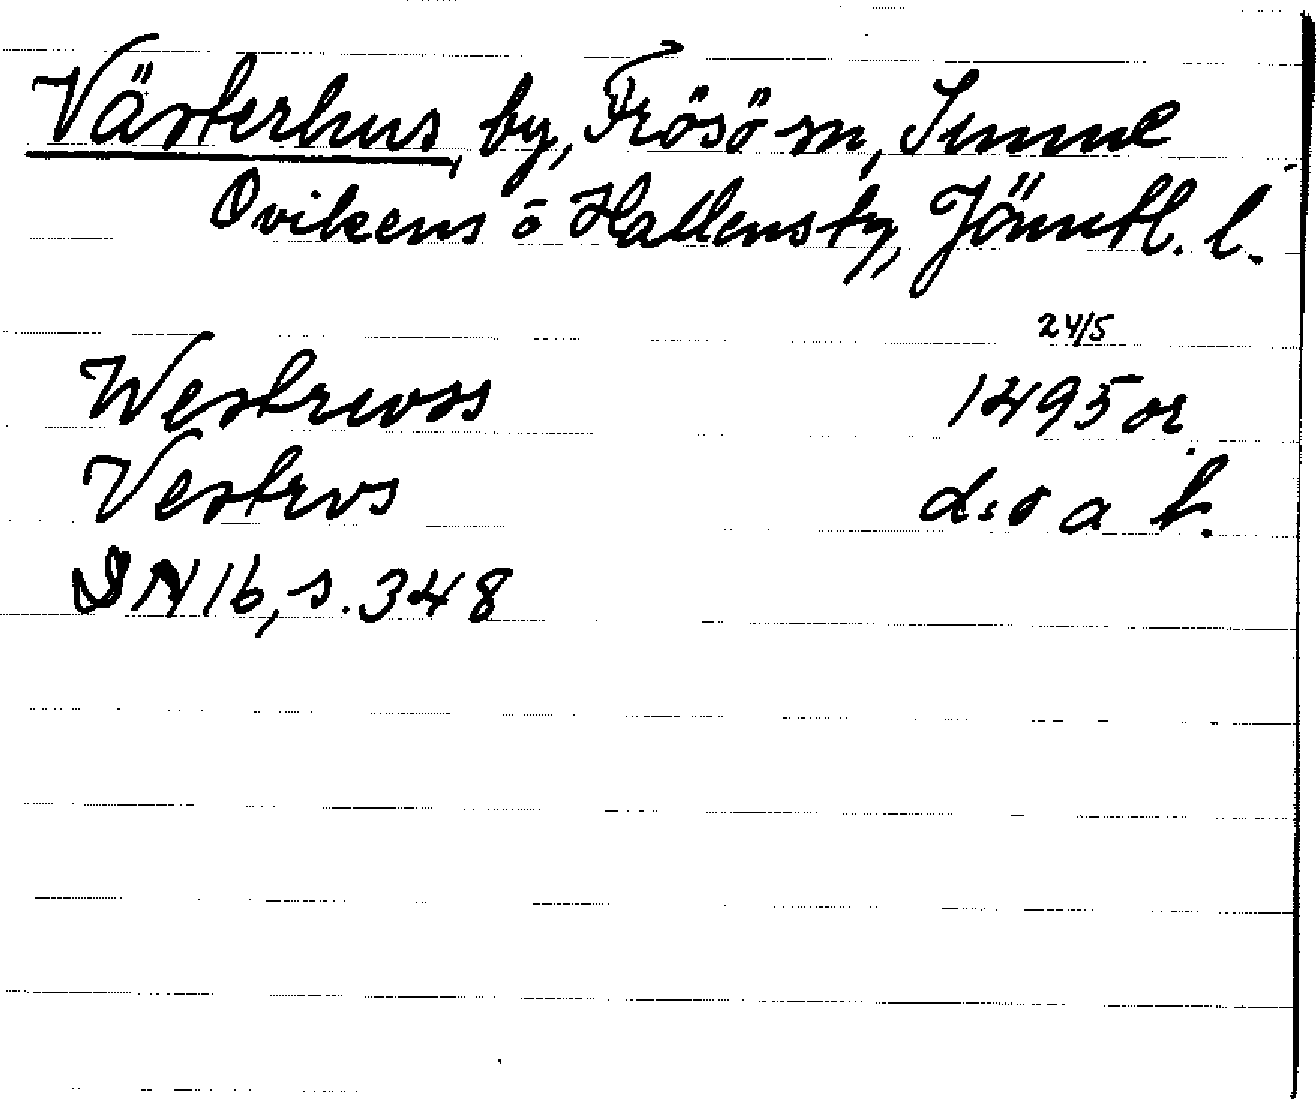 Västerhus, by, Frösö sn, Sunne
Ovikens o Hallens tg, Jämtl. l.
24/5
Westrwss 1495 or.
Vestrvs d:o a t.
DN 16, s. 348